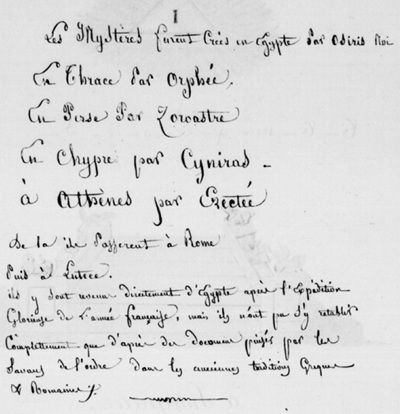 I
Les Mystères furent Créés en Egypte Par Osiris Roi
En Thrace Par Orphée.
En Perse Par Zoroastre
En Chypre par Cyniras -
à Athènes par Erectée
De la ils Passerent à Rome
Puis à Lutece.
ils y sont revenus directement d'Egypte après l'Expédition
Glorieuse de l'armée française, mais ils n'ont pu s'y retablir
Complettement que d'après des documens puisés par les
Savans de l'ordre dans les anciennes traditions Grecques
& Romaines